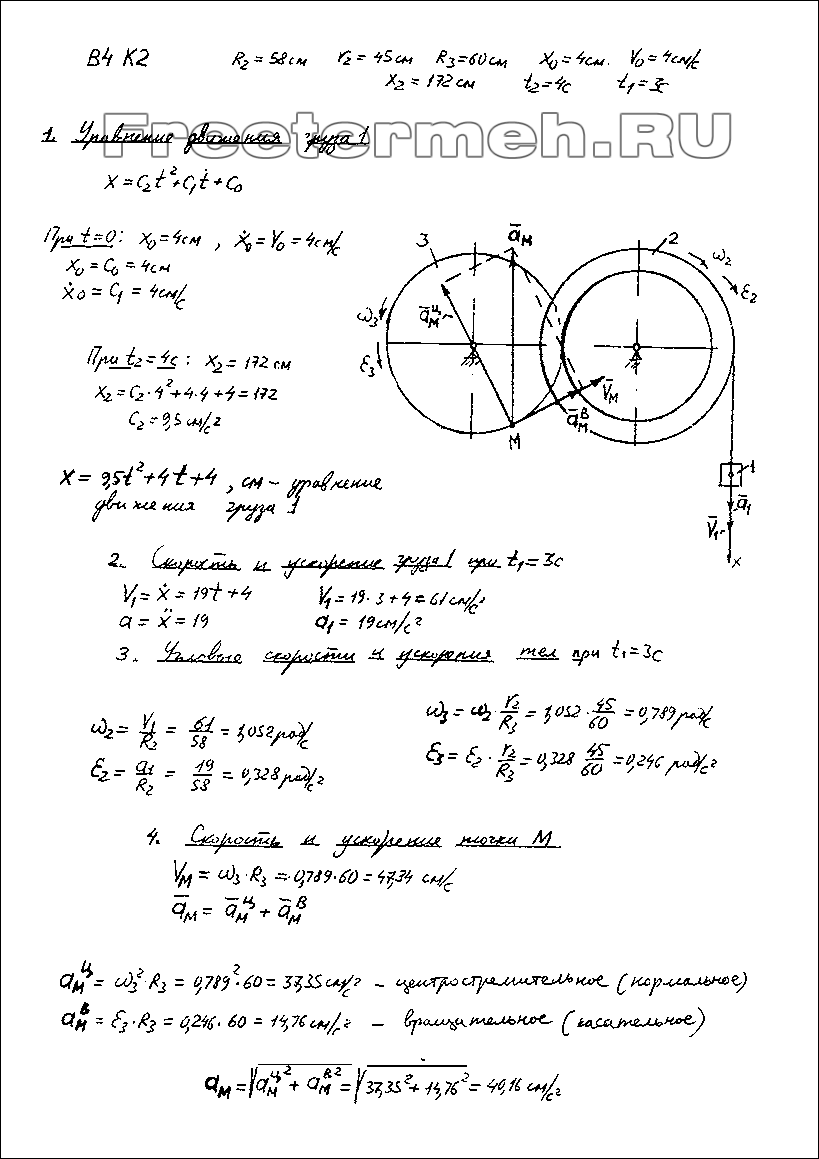 В4 К2 R₂ = 58 см r₂ = 45 см R₃ = 60 см X₀ = 4 см. V₀ = 4 см/с
X₂ = 172 см t₂ = 4с t₁ = 3с
Freetermeh.RU
1. Уравнение движения груза 1
X = C₂t² + C₁t + C₀
При t=0: x₀ = 4 см , ẋ₀ = V₀ = 4 см/с
x₀ = C₀ = 4 см
ẋ₀ = C₁ = 4 см/с
При t₂ = 4с : x₂ = 172 см
x₂ = C₂·4² + 4·4 + 4 = 172
C₂ = 9,5 см/с²
X = 9,5t² + 4t + 4 , см – уравнение
движения груза 1
3
a̅м
2
ω₂
ε₂
ω₃
ε₃
a̅мᶜ̧ц
V̅м
a̅мᴮ
М
1
a̅₁
V̅₁
x
2. Скорость и ускорение груза 1 при t₁ = 3с
V₁ = ẋ = 19t + 4 V₁ = 19·3 + 4 = 61 см/с
a = ẍ = 19 a₁ = 19 см/с²
3. Угловые скорости и ускорения тел при t₁ = 3с
ω₂ = V₁/R₂ = 61/58 = 1,052 рад/с
ε₂ = a₁/R₂ = 19/58 = 0,328 рад/с²
ω₃ = ω₂ · r₂/R₃ = 1,052 · 45/60 = 0,789 рад/с
ε₃ = ε₂ · r₂/R₃ = 0,328 45/60 = 0,246 рад/с²
4. Скорость и ускорение точки М
Vм = ω₃·R₃ = 0,789·60 = 47,34 см/с
a̅м = a̅м^ц + a̅м^в
aм^ц = ω₃²·R₃ = 0,789²·60 = 37,35 см/с² – центростремительное (нормальное)
aм^в = ε₃·R₃ = 0,246·60 = 14,76 см/с² – вращательное (касательное)
aм = √(aм^ц² + aм^в²) = √(37,35² + 14,76²) = 40,16 см/с²